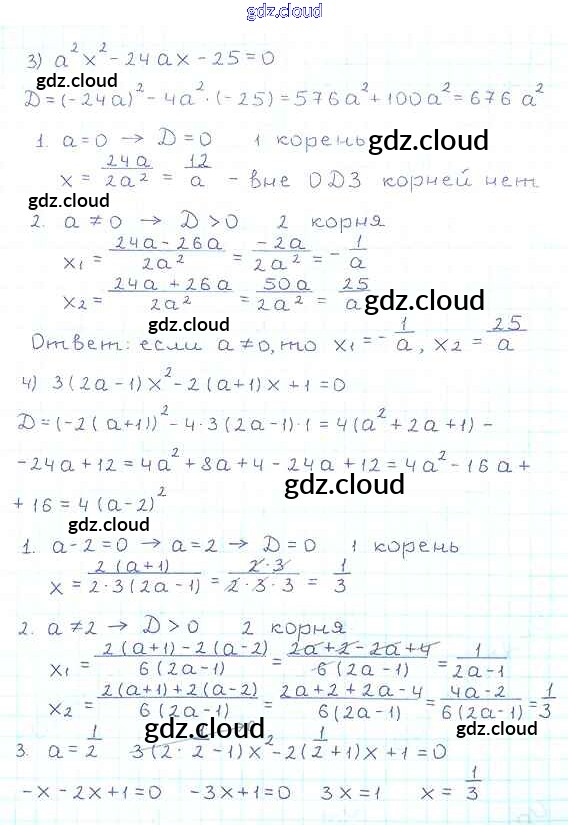 gdz.cloud
3) a²x² - 24ax - 25 = 0
gdz.cloud
D = (-24a)² - 4a² · (-25) = 576a² + 100a² = 676a²
1. a = 0 → D = 0 1 корень
gdz.cloud
x = 24a/2a² = 12/a - вне ОДЗ корней нет
gdz.cloud
2. a ≠ 0 → D > 0 2 корня
x₁ = (24a - 26a)/2a² = -2a/2a² = -1/a
x₂ = (24a + 26a)/2a² = 50a/2a² = 25/a
gdz.cloud
gdz.cloud
Ответ: если a ≠ 0, то x₁ = -1/a, x₂ = 25/a
4) 3(2a - 1)x² - 2(a + 1)x + 1 = 0
D = (-2(a + 1))² - 4 · 3(2a - 1) · 1 = 4(a² + 2a + 1) -
- 24a + 12 = 4a² + 8a + 4 - 24a + 12 = 4a² - 16a +
gdz.cloud
+ 16 = 4(a - 2)²
gdz.cloud
1. a - 2 = 0 → a = 2 → D = 0 1 корень
x = 2(a + 1)/(2 · 3(2a - 1)) = 2 · 3/(2 · 3 · 3) = 1/3
gdz.cloud
2. a ≠ 2 → D > 0 2 корня
x₁ = (2(a + 1) - 2(a - 2))/(6(2a - 1)) = (2a + 2 - 2a + 4)/(6(2a - 1)) = 1/(2a - 1)
x₂ = (2(a + 1) + 2(a - 2))/(6(2a - 1)) = (2a + 2 + 2a - 4)/(6(2a - 1)) = (4a - 2)/(6(2a - 1)) = 1/3
gdz.cloud
gdz.cloud
3. a = 1/2 3(2 · 1/2 - 1)x² - 2(1/2 + 1)x + 1 = 0
-x - 2x + 1 = 0 -3x + 1 = 0 3x = 1 x = 1/3
gdz.cloud
gdz.cloud